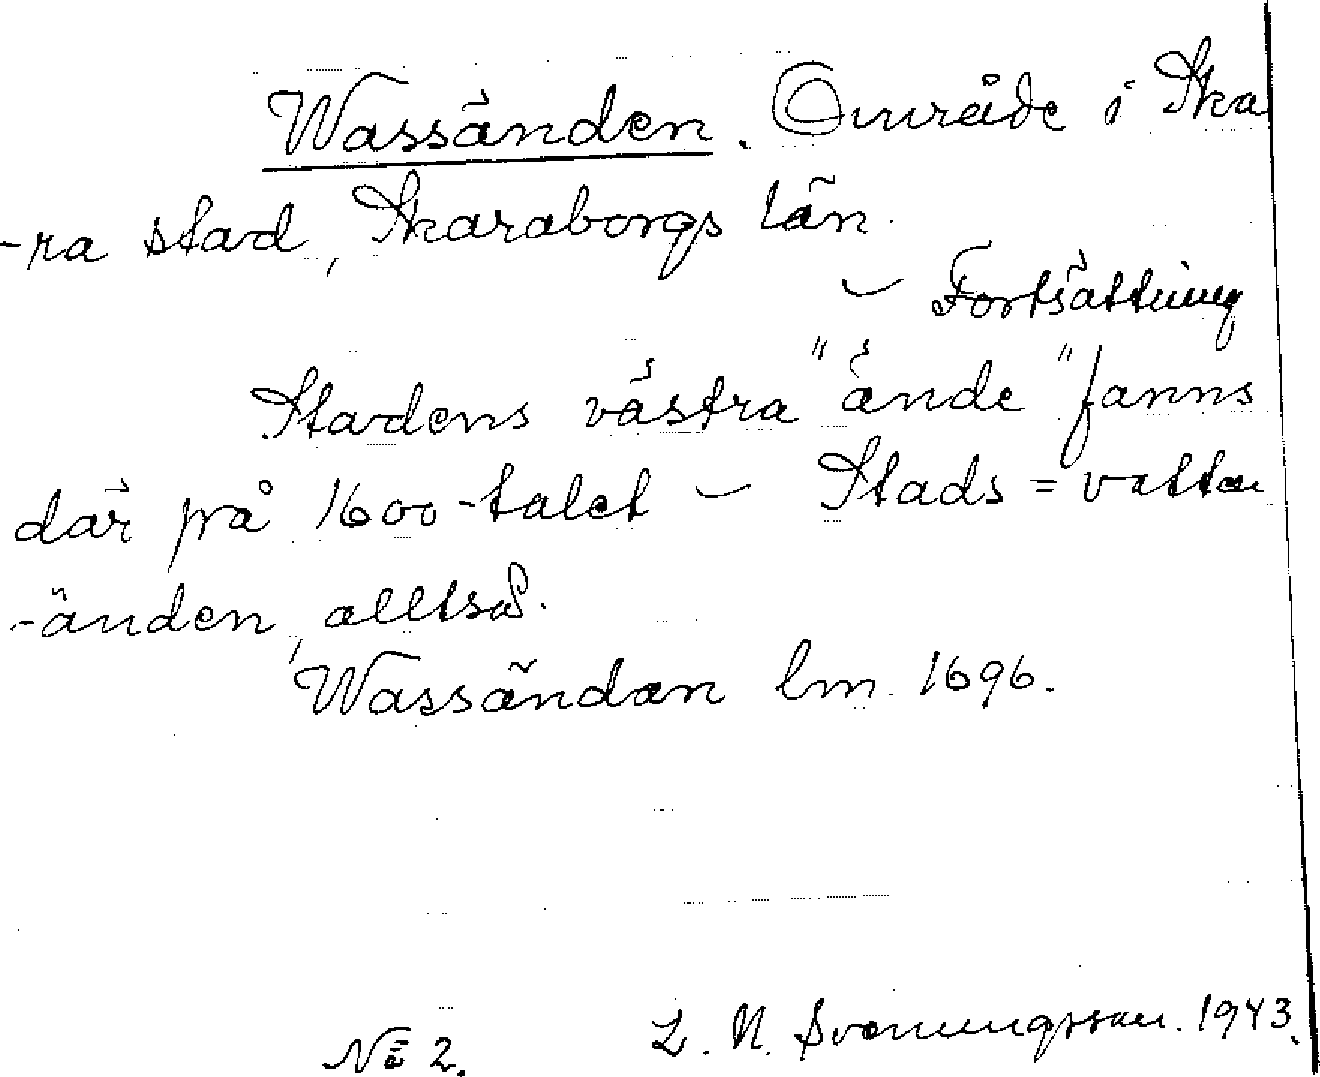 Wassänden. Område i Ska
-ra stad, Skaraborgs län.
— Fortsättning
Stardens västra "ände" fanns
där på 1600-talet — Stads = vatten
-änden, alltså.
Wassändan lm. 1696.
No 2. L. N. Svenungsson. 1943.